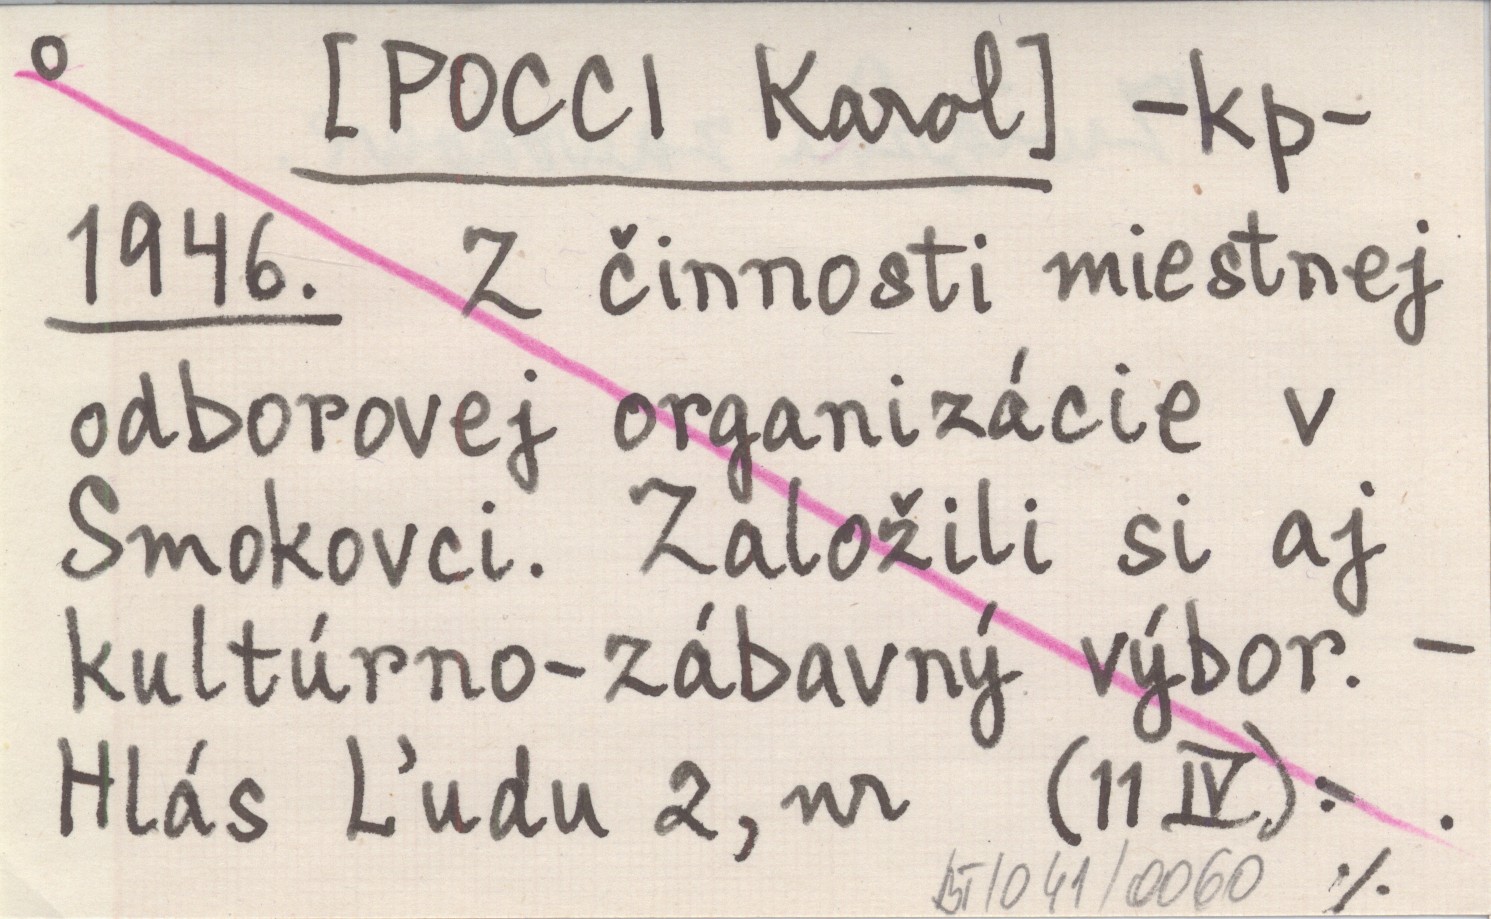 o [POCCI Karol] -kp-
1946. Z činnosti miestnej
odborovej organizácie v
Smokovci. Založili si aj
kultúrno-zábavný výbor. –
Hlás Ľudu 2, nr (11 IV):- .
BT/041/0060 ·/.